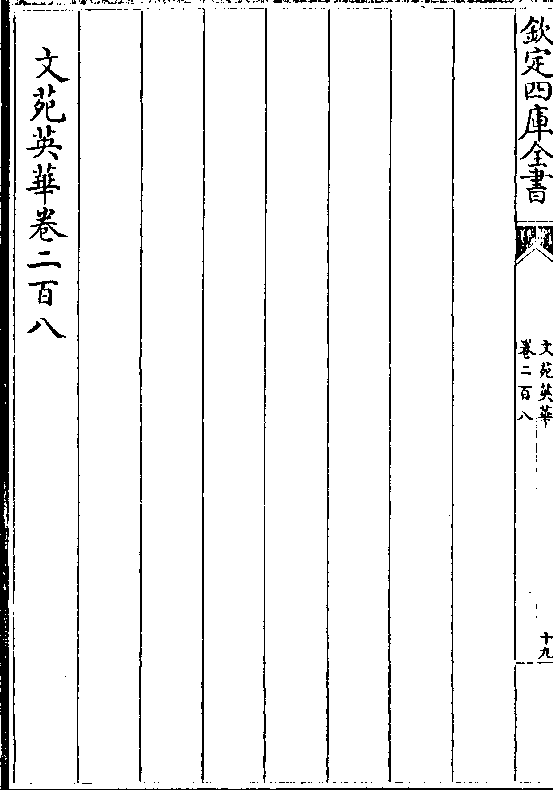 欽定四庫全書
文苑英華
卷二百八
十九
文苑英華卷二百八